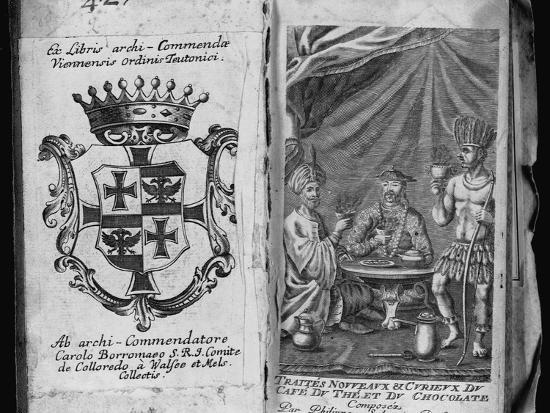 Ex Libris archi-Commendæ
Viennensis Ordinis Teutonici.
Ab archi-Commendatore
Carolo Borromaeo S.R.I. Comite
de Colloredo à Walsee et Mels.
Collectis.
TRAITÉS NOUVEAUX & CURIEUX DU
CAFÉ DU THÉ ET DU CHOCOLATE
Composéz
Par